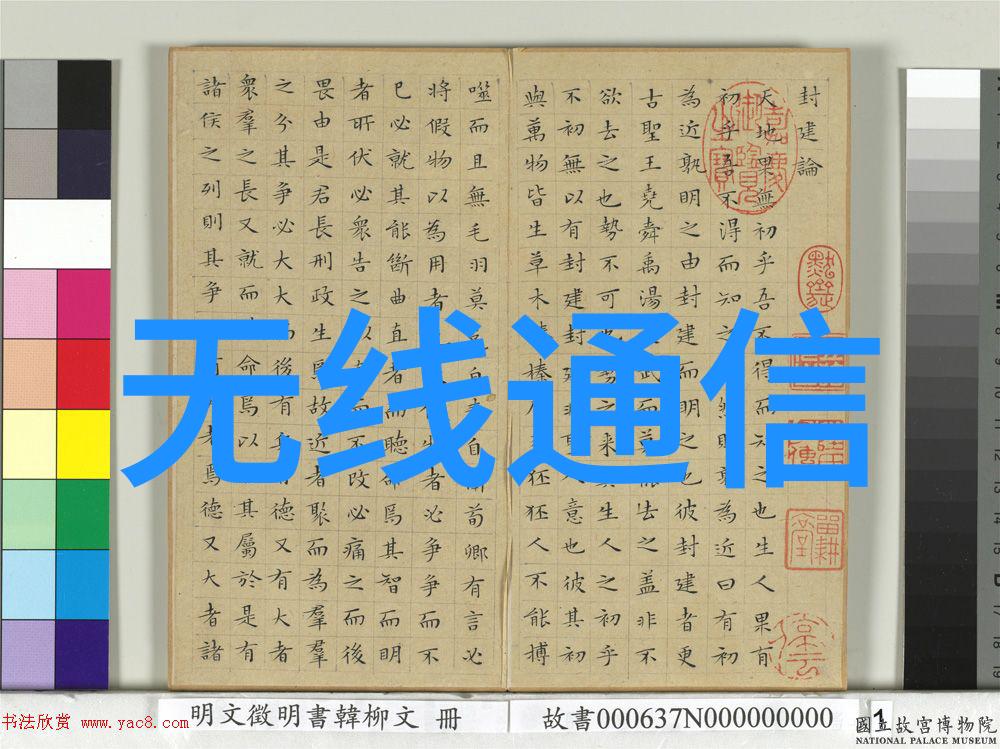 封建論
天地果無初乎吾不得而知之也生人果有
初乎吾不得而知之 然則孰為近曰有初
為近孰明之由封建而明之也彼封建者更
古聖王堯舜禹湯 武而莫能去之蓋非不
欲去之也勢不可也勢之來 生人之初乎
不初無以有封建封建非聖人意也彼其初
與萬物皆生草木榛榛 狉狉人不能搏
噬而且無毛羽莫 自奉自衛荀卿有言必
將假物以為用者 物者必爭爭而不
已必就其能斷曲直者而聽命焉其智而明
者所伏必眾告之以直而不改必痛之而後
畏由是君長刑政生焉故近者聚而為羣羣
之分其爭必大大而後有兵有德又有大者
眾羣之長又就而 命焉以 其屬於是有
諸侯之列則其爭 有 者焉德又大者諸
嘉慶御覽之寶
无线通信
书法欣赏 www.yac8.com
明文徵明書韓柳文 冊
故書000637N000000000
1
國立故宮博物院
NATIONAL PALACE MUSEUM